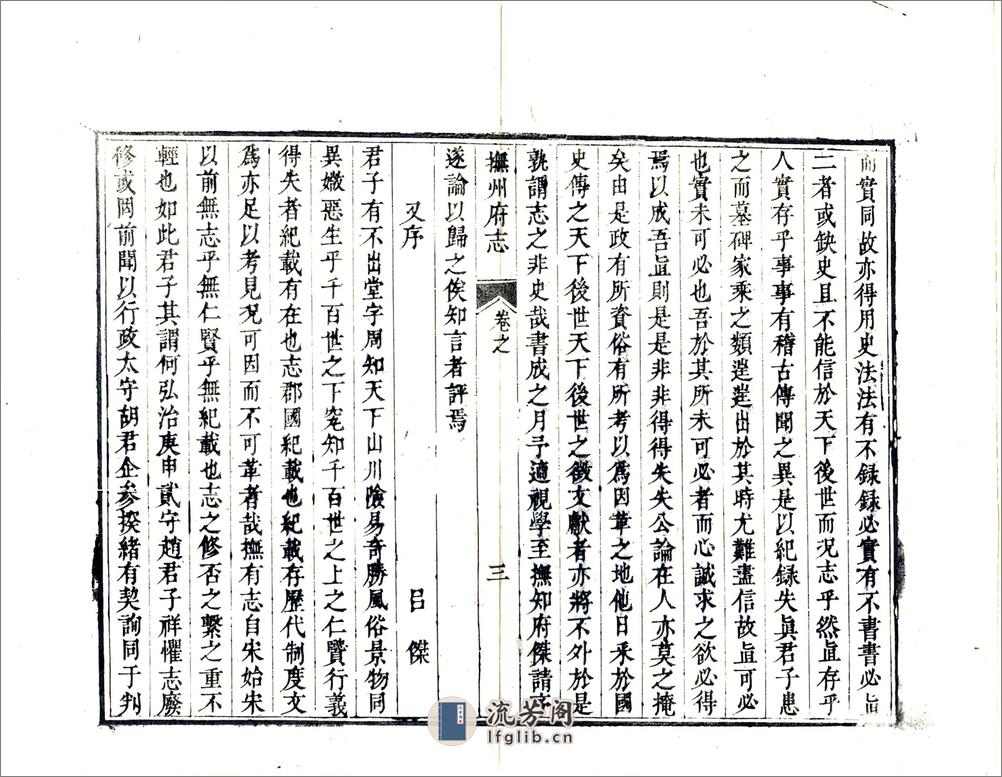 而實同故亦得用史法法有不録録必實有不書書必眞
二者或缺史且不能信於天下後世而况志乎然眞存乎
人實存乎事事有稽古傳聞之異是以紀録失眞君子患
之而墓碑家乘之類遑遑出於其時尤難盡信故眞可必
也實未可必也吾於其所未可必者而心誠求之欲必得
焉以成吾眞則是是非非得得失失公論在人亦莫之掩
矣由是政有所資俗有所考以爲因革之地他日采於國
史傳之天下後世天下後世之徵文獻者亦將不外於是
孰謂志之非史哉書成之月予適視學至撫知府傑請序
撫州府志
卷之
三
遂論以歸之俟知言者評焉
又序
吕傑
君子有不出堂字周知天下山川險易奇勝風俗景物同
異媺惡生乎千百世之下究知千百世之上之仁賢行義
得失者紀載有在也志郡國紀載也紀載存歷代制度文
爲亦足以考見况可因而不可革者哉撫有志自宋始宋
以前無志乎無仁賢乎無紀載也志之修否之繫之重不
輕也如此君子其謂何弘治庚申貳守趙君子祥懼志廢
修或罔前聞以行政太守胡君企參揆緒有契詢同于判
流芳阁
lfglib.cn